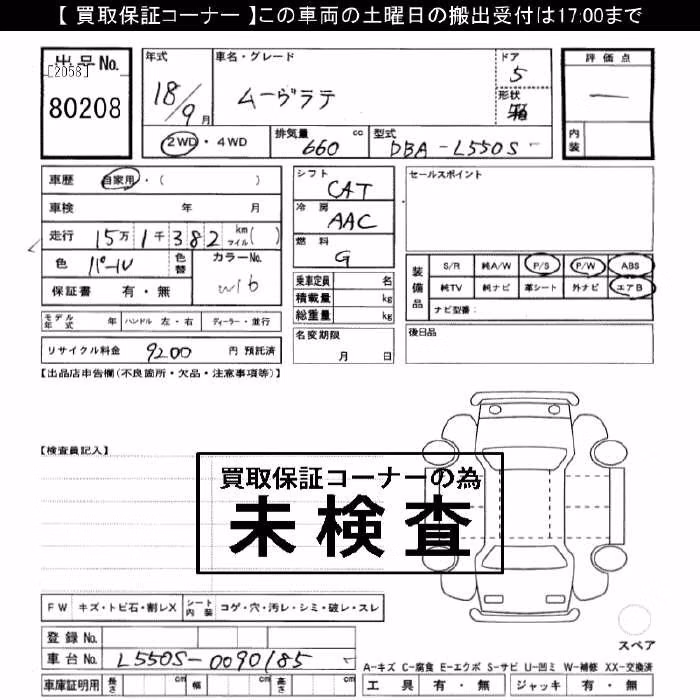 【 買取保証コーナー 】この車両の土曜日の搬出受付は17:00まで
出品No.
[2058]
80208
年式
18/9月
車名・グレード
ムーヴラテ
ドア
5
形状
箱
評価点
―
内装
2WD・4WD
排気量 660 cc
型式 DBA-L550S-
車歴 自家用・( )
車検 年 月
走行 15万1千382 km マイル( )
色 パール 色替
カラーNo. W16
保証書 有・無
シフト CAT
冷房 AAC
燃料 G
乗車定員 名
積載量 kg
総重量 kg
セールスポイント
装備品
S/R 純A/W P/S P/W ABS
純TV 純ナビ 革シート 外ナビ エアB
ナビ型番:
モデル年式 年 ハンドル 左・右 ディーラー・並行
リサイクル料金 9200 円 預託済
名変期限 月 日
後日品
【出品店申告欄(不良箇所・欠品・注意事項等)】
【検査員記入】
買取保証コーナーの為
未検査
FW キズ・トビ石・割レX シート内装 コゲ・穴・汚レ・シミ・破レ・スレ
登録No.
車台No. L550S-0090185-
車庫証明用 長さ cm 幅 cm 高さ cm
スペア
A-キズ C-腐食 E-エクボ S-サビ U-凹ミ W-補修 XX-交換済
工具 有・無 ジャッキ 有・無